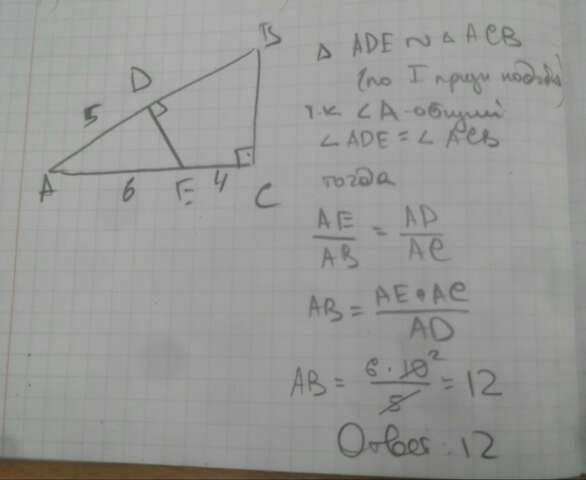 B
D
5
A
6
E
4
C
△ ADE ~ △ ACB
(по I призн подоб)
т.к ∠A-общий
∠ADE = ∠ACB
тогда
AE/AB = AD/AC
AB = AE•AC/AD
AB = 6·10²/5 = 12
Ответ: 12